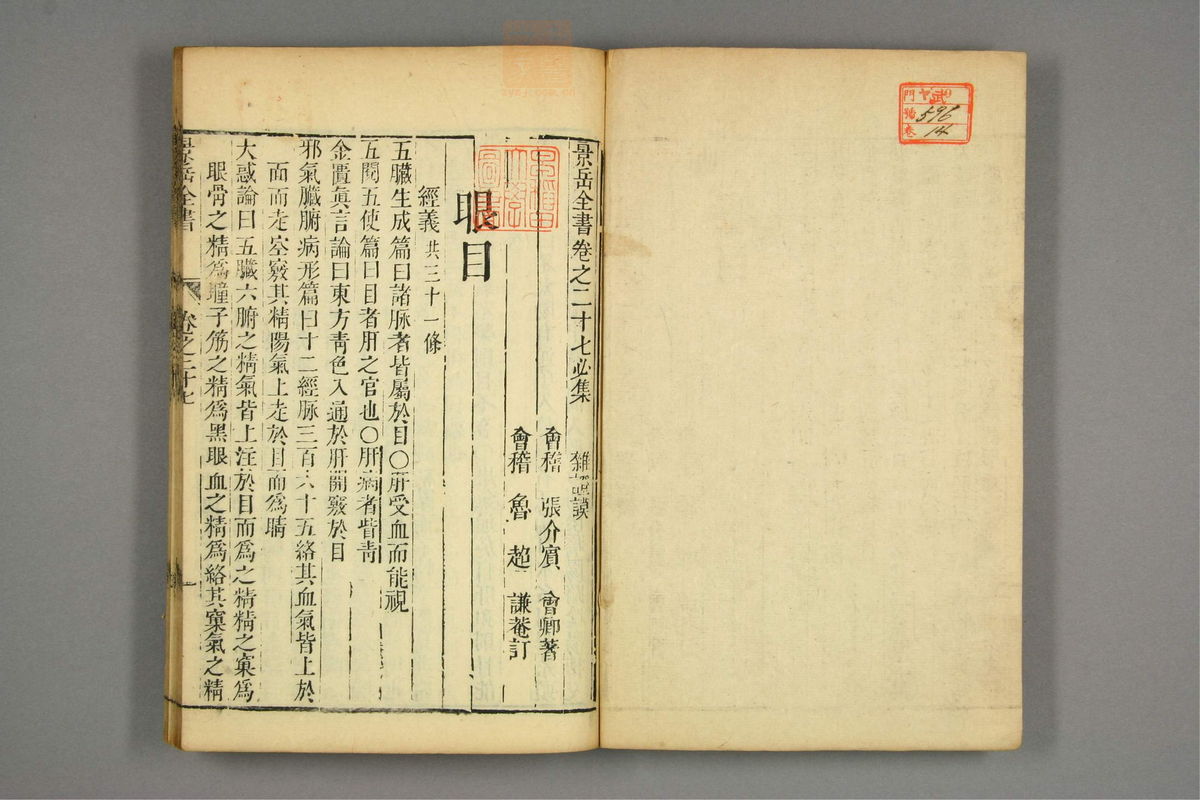 景岳全書卷之二十七必集 雜證謨
會稽 張介賓 會卿著
會稽 魯 超 謙菴訂
眼目
經義 共三十一條
五臟生成篇曰諸脉者皆屬於目〇肝受血而能視
五閱五使篇曰目者肝之官也〇肝病者眥靑
金匱眞言論曰東方靑色入通於肝開竅於目
邪氣臟腑病形篇曰十二經脉三百六十五絡其血氣皆上於
面而走空竅其精陽氣上走於目而爲睛
大惑論曰五臟六腑之精氣皆上注於目而爲之精精之窠爲
眼骨之精爲瞳子筋之精爲黑眼血之精爲絡其窠氣之精
景岳全書 卷之二十七 一
門 號 卷
596
14